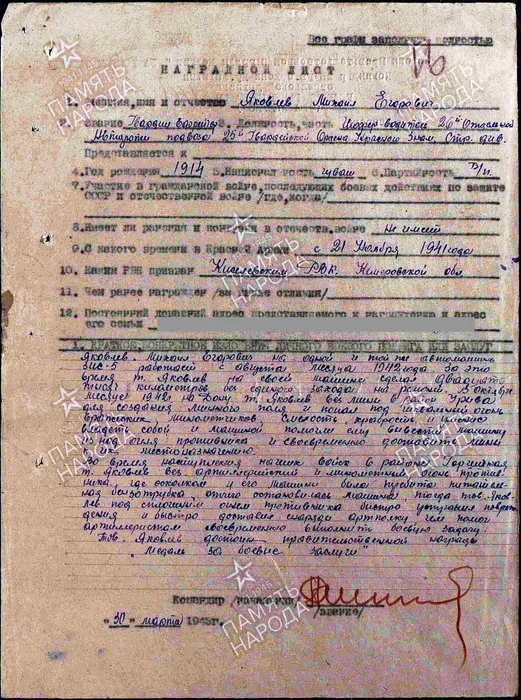 Все графы заполнять полностью
НАГРАДНОЙ ЛИСТ
1. Фамилия, имя и отчество Яковлев Михаил Егорович
2. Звание Гвардии 3. Должность, часть Шофер водитель 26й Отдельной
Автороты подвоза 25й Гвардейской Ордена Красного Знам. Стр. див.
Представляется к
4. Год рождения 1914 5. Национальность чуваш 6. Партийность б/п.
7. Участие в гражданской войне, последующих боевых действиях по защите
СССР и отечественной войне /где, когда/
8. Имеет ли ранения и контузии в отечеств. войне не имеет
9. С какого времени в Красной Армии с 21 Ноября 1941 года
10. Каким РВК призван Киселевским РВК Кемеровской обл
11. Чем ранее награжден /за какие отличия/
12. Постоянный домашний адрес представляемого к награждению и адрес
его семьи
1. КРАТКОЕ, КОНКРЕТНОЕ ИЗЛОЖЕНИЕ ЛИЧНОГО БОЕВОГО ПОДВИГА ИЛИ ЗАСЛУГ
Яковлев Михаил Егорович на одной и той же автомашине
ЗИС-5 работает с августа месяца 1942 года за это
время т. Яковлев на своей машине сделал двадцать
тысяч километров без единого Октябре
месяце 1942 г. на Дону т. Яковлев вез мины в район Урыва
для создания минного поля и попал под сильный огонь
вражеских минометчиков, смелость, храбрость и умение
владеть собой и машиной помогли ему вывести машину
из под огня противника и своевременно доставить мины
к месту назначения.
Во время наступления наших войск в районе
т. Яковлев вез артиллерийский и минометный против-
ника, где осколком у его машины была пробита питатель-
ная бензотрубка, отчего остановилась машина, тогда тов. Яков-
лев под сплошным огнем противника быстро устранил повреж-
дения и быстро доставил снаряды артполку чем помог
артиллеристам своевременно выполнить боевую задачу.
Тов. Яковлев достоин правительственной награды
"Медаль За боевые заслуги"
Командир /начальник/
/звание/
"30" марта 1943 г.
ПАМЯТЬ НАРОДА
ПАМЯТЬ НАРОДА
ПАМЯТЬ НАРОДА
ПАМЯТЬ НАРОДА
ПАМЯТЬ НАРОДА